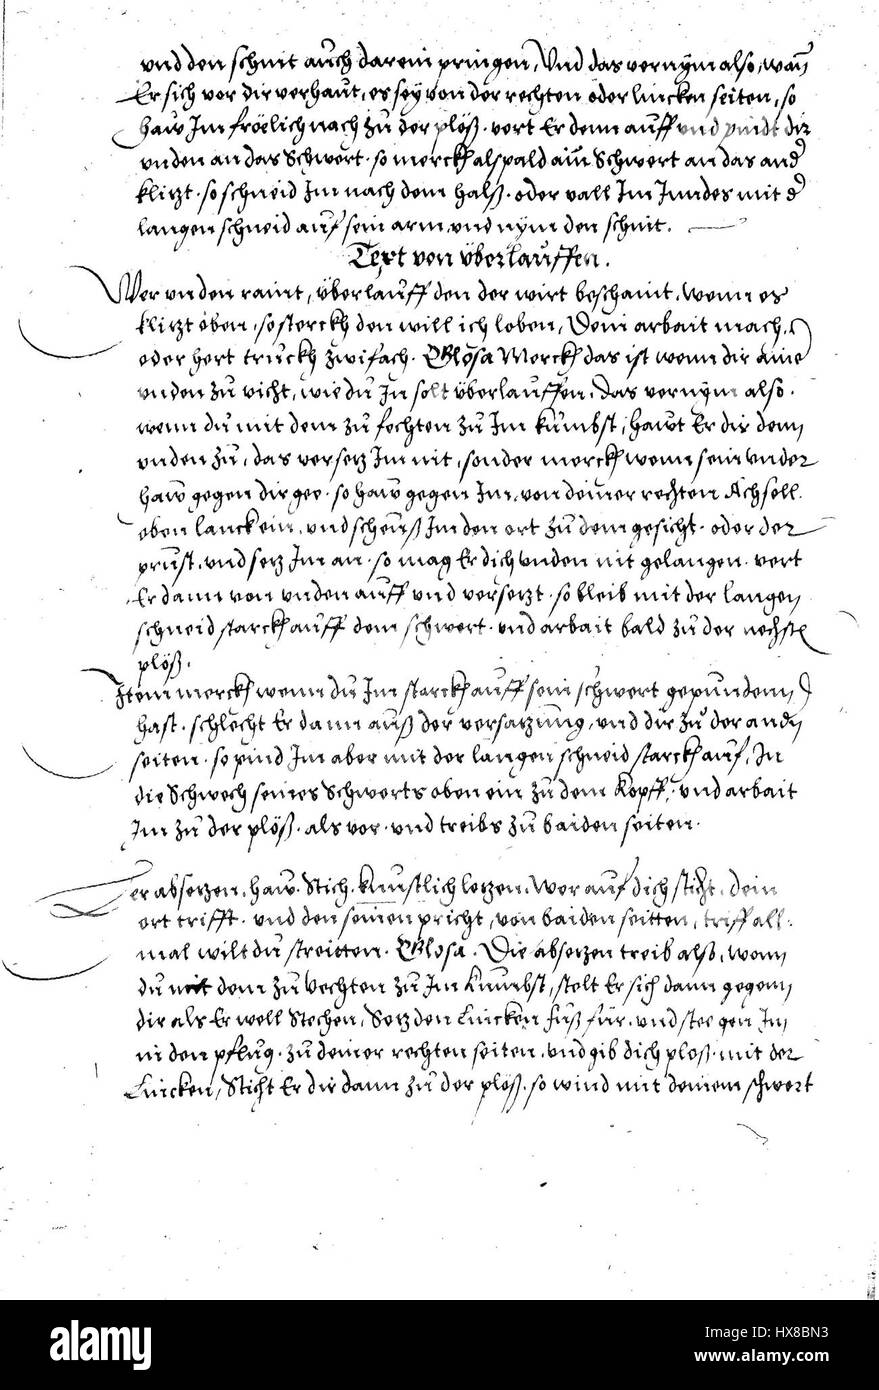 vnd den schnit auch darein pringen, Vnd das vernym also, wañ
Er sich vor dir verhaut, es sey von der rechten oder lincken seiten, so
haw Im frölich nach zu der plöß. vert Er denn auff vnd pindt dir
vnden an das Schwert. so merckh alspald ain Schwert an das and
klitzt. so schneid Im nach dem halß. oder vall Im Inndes mit d
langen schneid auf sein arm vnd nym den schnit.
Text von Überlauffen.
Wer vnden ramt, überlauff den der wirt beschamt. wenn es
klitzt oben. so sterckh den will ich loben, Dein arbait mach.
oder hert truckh zwifach. Glosa Merckh das ist wenn dir aine
vnden zu vicht, wie du In solt überlauffen. das vernym also.
wenn du mit dem zu fechten zu Im kumbst, hawt Er dir denn
vnden zu, das versetz Im nit, sonder merckh wenn sein vnder
haw gegen dir gee. so haw gegen Im, von deiner rechten Achsell.
oben lanck ein. vnd scheuß Im den ort zu dem gesicht. oder der
prust. vnd setz Im an. so mag Er dich vnden nit gelangen. vert
Er dann von vnden auff vnd versetzt. so bleib mit der langen
schneid starckh auff dem schwert. vnd arbait bald zu der nechsten
plöß.
Item merckh wenn du Im starckh auff sein schwert gepunden
hast. schlecht Er dann auß der versatzung, vnd dir zu der andn
seiten. so pind Im aber mit der langen schneid starckh auf, In
die Schwech seines Schwerts oben ein zu dem Kopff, vnd arbait
Im zu der plöß. als vor. vnd treibs zu baiden seiten.
Ler absetzen. haw. Stich. kunstlich letzen. Wer auf dich sticht. dein
ort trifft. vnd den seinen pricht, von baiden seitten, triff all.
mal wilt du streitten. Glosa. Die absetzen treib alß, wenn
du mit dem zu vechten zu Im kumbst, stelt Er sich dann gegen
dir als Er well Stechen, Setz den Lincken fuß für. vnd stee gen Im
in den pflug. zu deiner rechten seiten. vnd gib dich ploß mit der
Lincken, Sticht Er dir dann zu der plöß. so wind mit deinem schwert
alamy
Image ID: HX8BN3
www.alamy.com